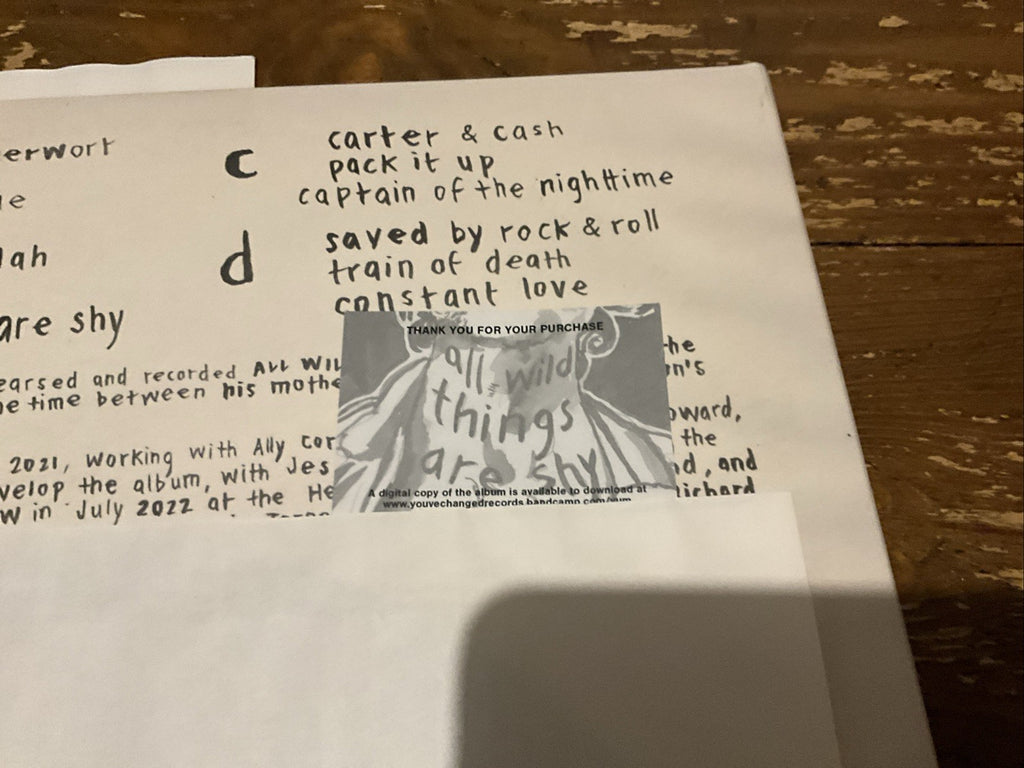 erwort
e
lah
are shy
c
carter & cash
pack it up
captain of the nighttime
d
saved by rock & roll
train of death
constant love
earsed and recorded ALL WIL
he
e time between his mothe
n's
oward,
2021, working with Ally Cor
the
velop the album, with Jes
nd, and
w in July 2022 at the He
Richard
THANK YOU FOR YOUR PURCHASE
all wild
things
are shy
A digital copy of the album is available to download at
www.youvechangedrecords.bandcamp.com/yum